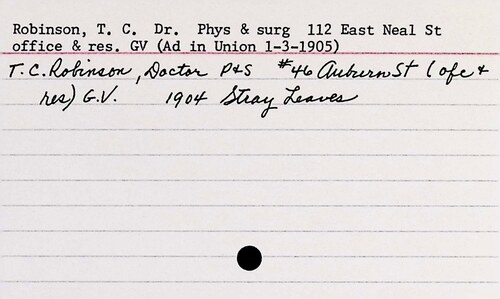 Robinson, T. C. Dr. Phys & surg 112 East Neal St
office & res. GV (Ad in Union 1-3-1905)
T. C. Robinson, Doctor P&S #46 Auburn St (ofc &
res) G.V. 1904 Stray Leaves